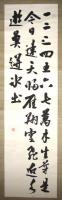 一二三四五六七萬木生芽是
今日遠天歸雁拂雲飛近
遊魚逆氷出